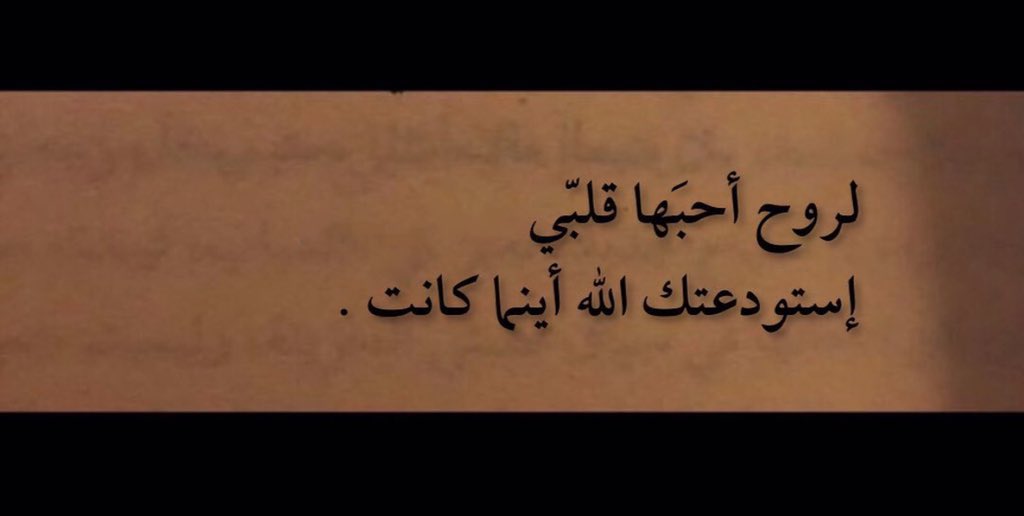 لروح أحبَها قلبّي
إستودعتك الله أينما كانت .